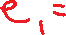 e₁ =